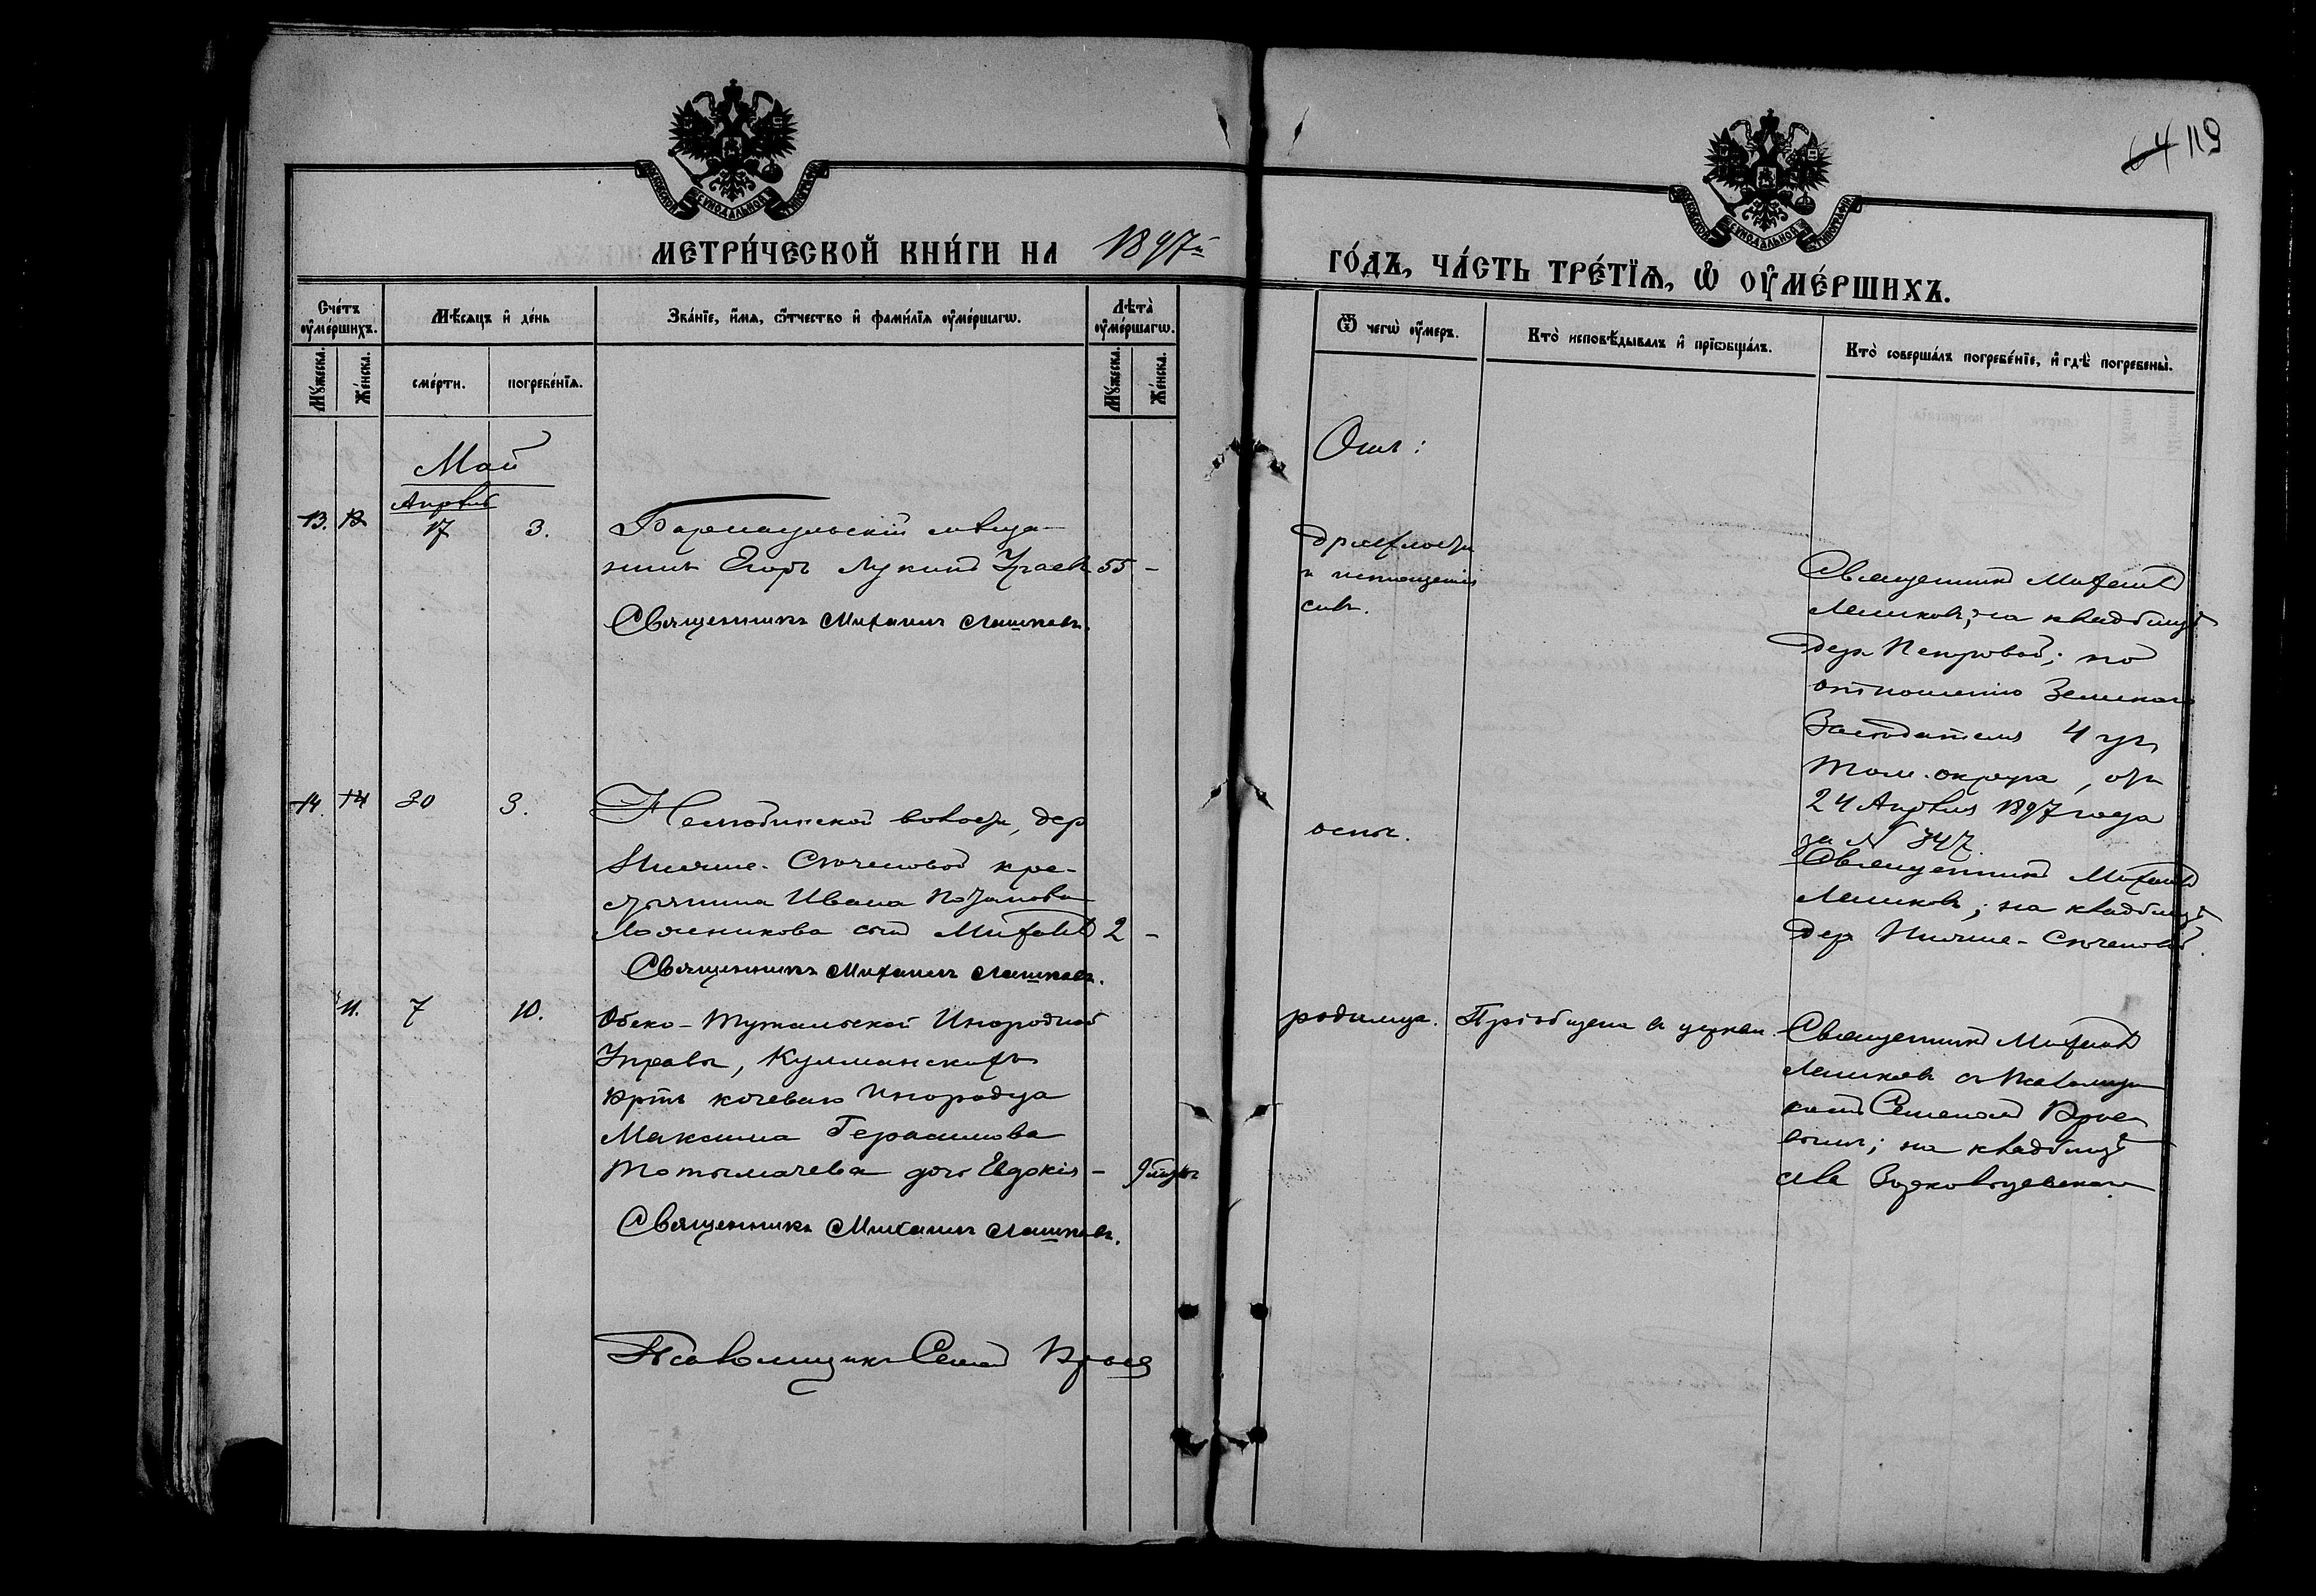 64 119
МЕТРИ́ЧЕСКОЙ КНИ́ГИ НА 1897й
ГО́ДЪ, ЧА́СТЬ ТРЕ́ТЇѦ, Ѡ҆ ОУ҆МЕ́РШИХЪ.
Сче́тъ оу҆ме́ршихъ.
Му́жеска.
Же́нска.
Мѣ́сѧцъ и҆ де́нь
сме́рти.
погребе́нїѧ.
Зва́нїе, и҆́мѧ, ѻ҆́тчество и҆ фами́лїѧ оу҆ме́ршагѡ.
Лѣта̀ оу҆ме́ршагѡ.
Му́жеска.
Же́нска.
Ѿ чегѡ̀ оу҆́меръ.
Кто̀ исповѣ́дывалъ и҆ прїѡбща́лъ.
Кто̀ соверша́лъ погребе́нїе, и҆ гдѣ̀ погребены̀.
Май
Отъ:
Апрѣль
13. 13 17 3.
Барнаульскій мѣща-
нинъ Егоръ Лукинъ 55 -
Священникъ Михаилъ Лашковъ.
дряхлости
и истощенія
силъ.
Священникъ Михаилъ
Лашковъ; на кладбищѣ
дер. Петровой; по
отношенію Земскаго
Засѣдателя 4 уч.
Том. округа, отъ
24 Апрѣля 1897 года
за № 347.
14. 14 30 3.
Нелюбинской волости, дер.
Нижне-Сѣченовой кре-
стьянина Ивана
Ложникова сынъ Михаилъ 2 -
Священникъ Михаилъ Лашковъ.
оспы.
Священникъ Михаилъ
Лашковъ; на кладбищѣ
дер. Нижне-Сѣченовой.
11. 7 10.
Обско-Тутальской Инородной
Управы, Кулманскихъ
юртъ кочеваго инородца
Максима Герасимова
Тотымачева дочь Евдокія -
Священникъ Михаилъ Лашковъ.
родимца.
Пріобщена въ церкви.
Священникъ Михаилъ
Лашковъ съ Псаломщи-
комъ Семеномъ
на кладбищѣ
села
Псаломщикъ Семенъ